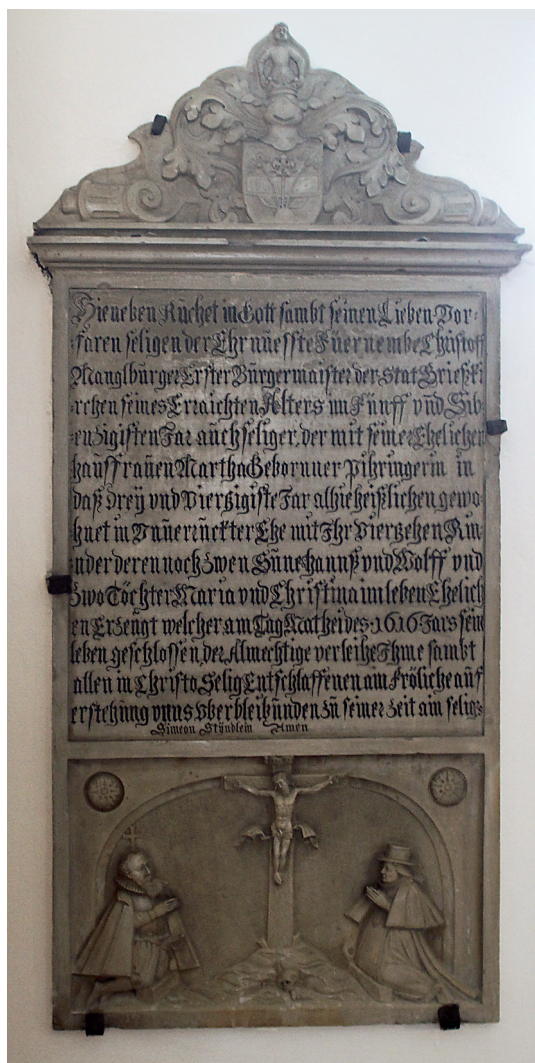 Hieneben Rüchet in Gott sambt seinen Lieben Vor-
faren seligen der Ehrnüesste Füernembe Christoff
Manglbürger Erster Bürgermaister der Stat Grießki-
rchen seines Erraichten Alters im Fünff vnd Sib-
enzigisten Jar aüch seliger, der mit seiner Ehelichen
haüsfraüen Martha Gebornner Pihringerin in
daß drey vnd Vierzigiste Jar alhie heißlichen gewo
hnet in Vnüerruckter Ehe mit Ihr Vierzehen Kin-
nder deren noch zwen Süne hannß vnd Wolff vnd
zwo Töchter Maria vnd Christina im leben Ehelich
en Erzeügt welcher am Tag Mathei des 1616 Jars sein
leben geschlossen, der Almechtige verleihe Ihme sambt
allen in Christo Selig Entschlaffenen am Fröliche auf
erstehung vnns vberbleibünden zu seiner zeit ain selig:
Simeon Stündlein Amen